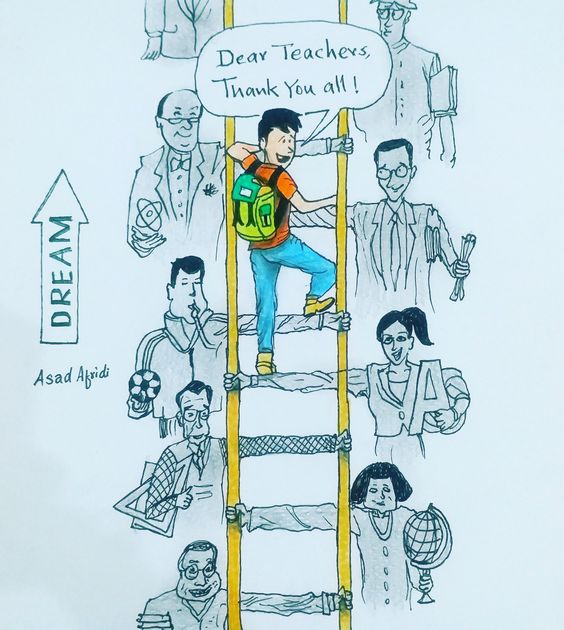 Dear Teachers,
Thank You all!
DREAM
Asad Afridi
A